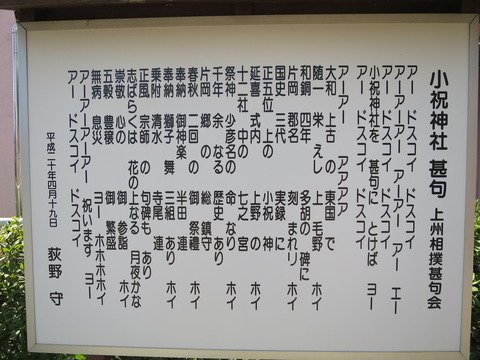 小祝神社 甚句 上州相撲甚句会
アー ドスコイ ドスコイ
アーアー アーアー アー エー
アー ドスコイ ドスコイ
小祝神社を 甚句に とけば ヨー
アー ドスコイ ドスコイ
アーアー アアアア
大和 上古 の 東国 で
随一 栄えし 上 毛野 ホイ
和銅 四年 多胡の 碑に
片岡 郡名 刻 まれり ホイ
国史 三代 実録 に
正五位 上の 小祝 神 ホイ
延喜 式内 上野 の
十二社 中の 七之 宮 ホイ
祭神 少彦名の 命 なり ホイ
千年 余 なる 歴史 あり
片岡 郷 の 総 鎮守 ホイ
春秋 二回 の 御 祭禮
奉納 御神楽 半田 連 ホイ
奉納 獅子 舞 三組 あり ホイ
乗附 清水 寺尾 連 ホイ
正風 宗師 の 句碑も あり
志ばらくは 花の 上なる 月夜かな
崇敬 心の 御 参詣 ホイ
五穀 豊穣 御 繁盛
無病 息災 ヨー ホホホホイ
アーアー アーアー 祝います ヨー
アー ドスコイ ドスコイ
平成二十年四月十九日 荻野 守